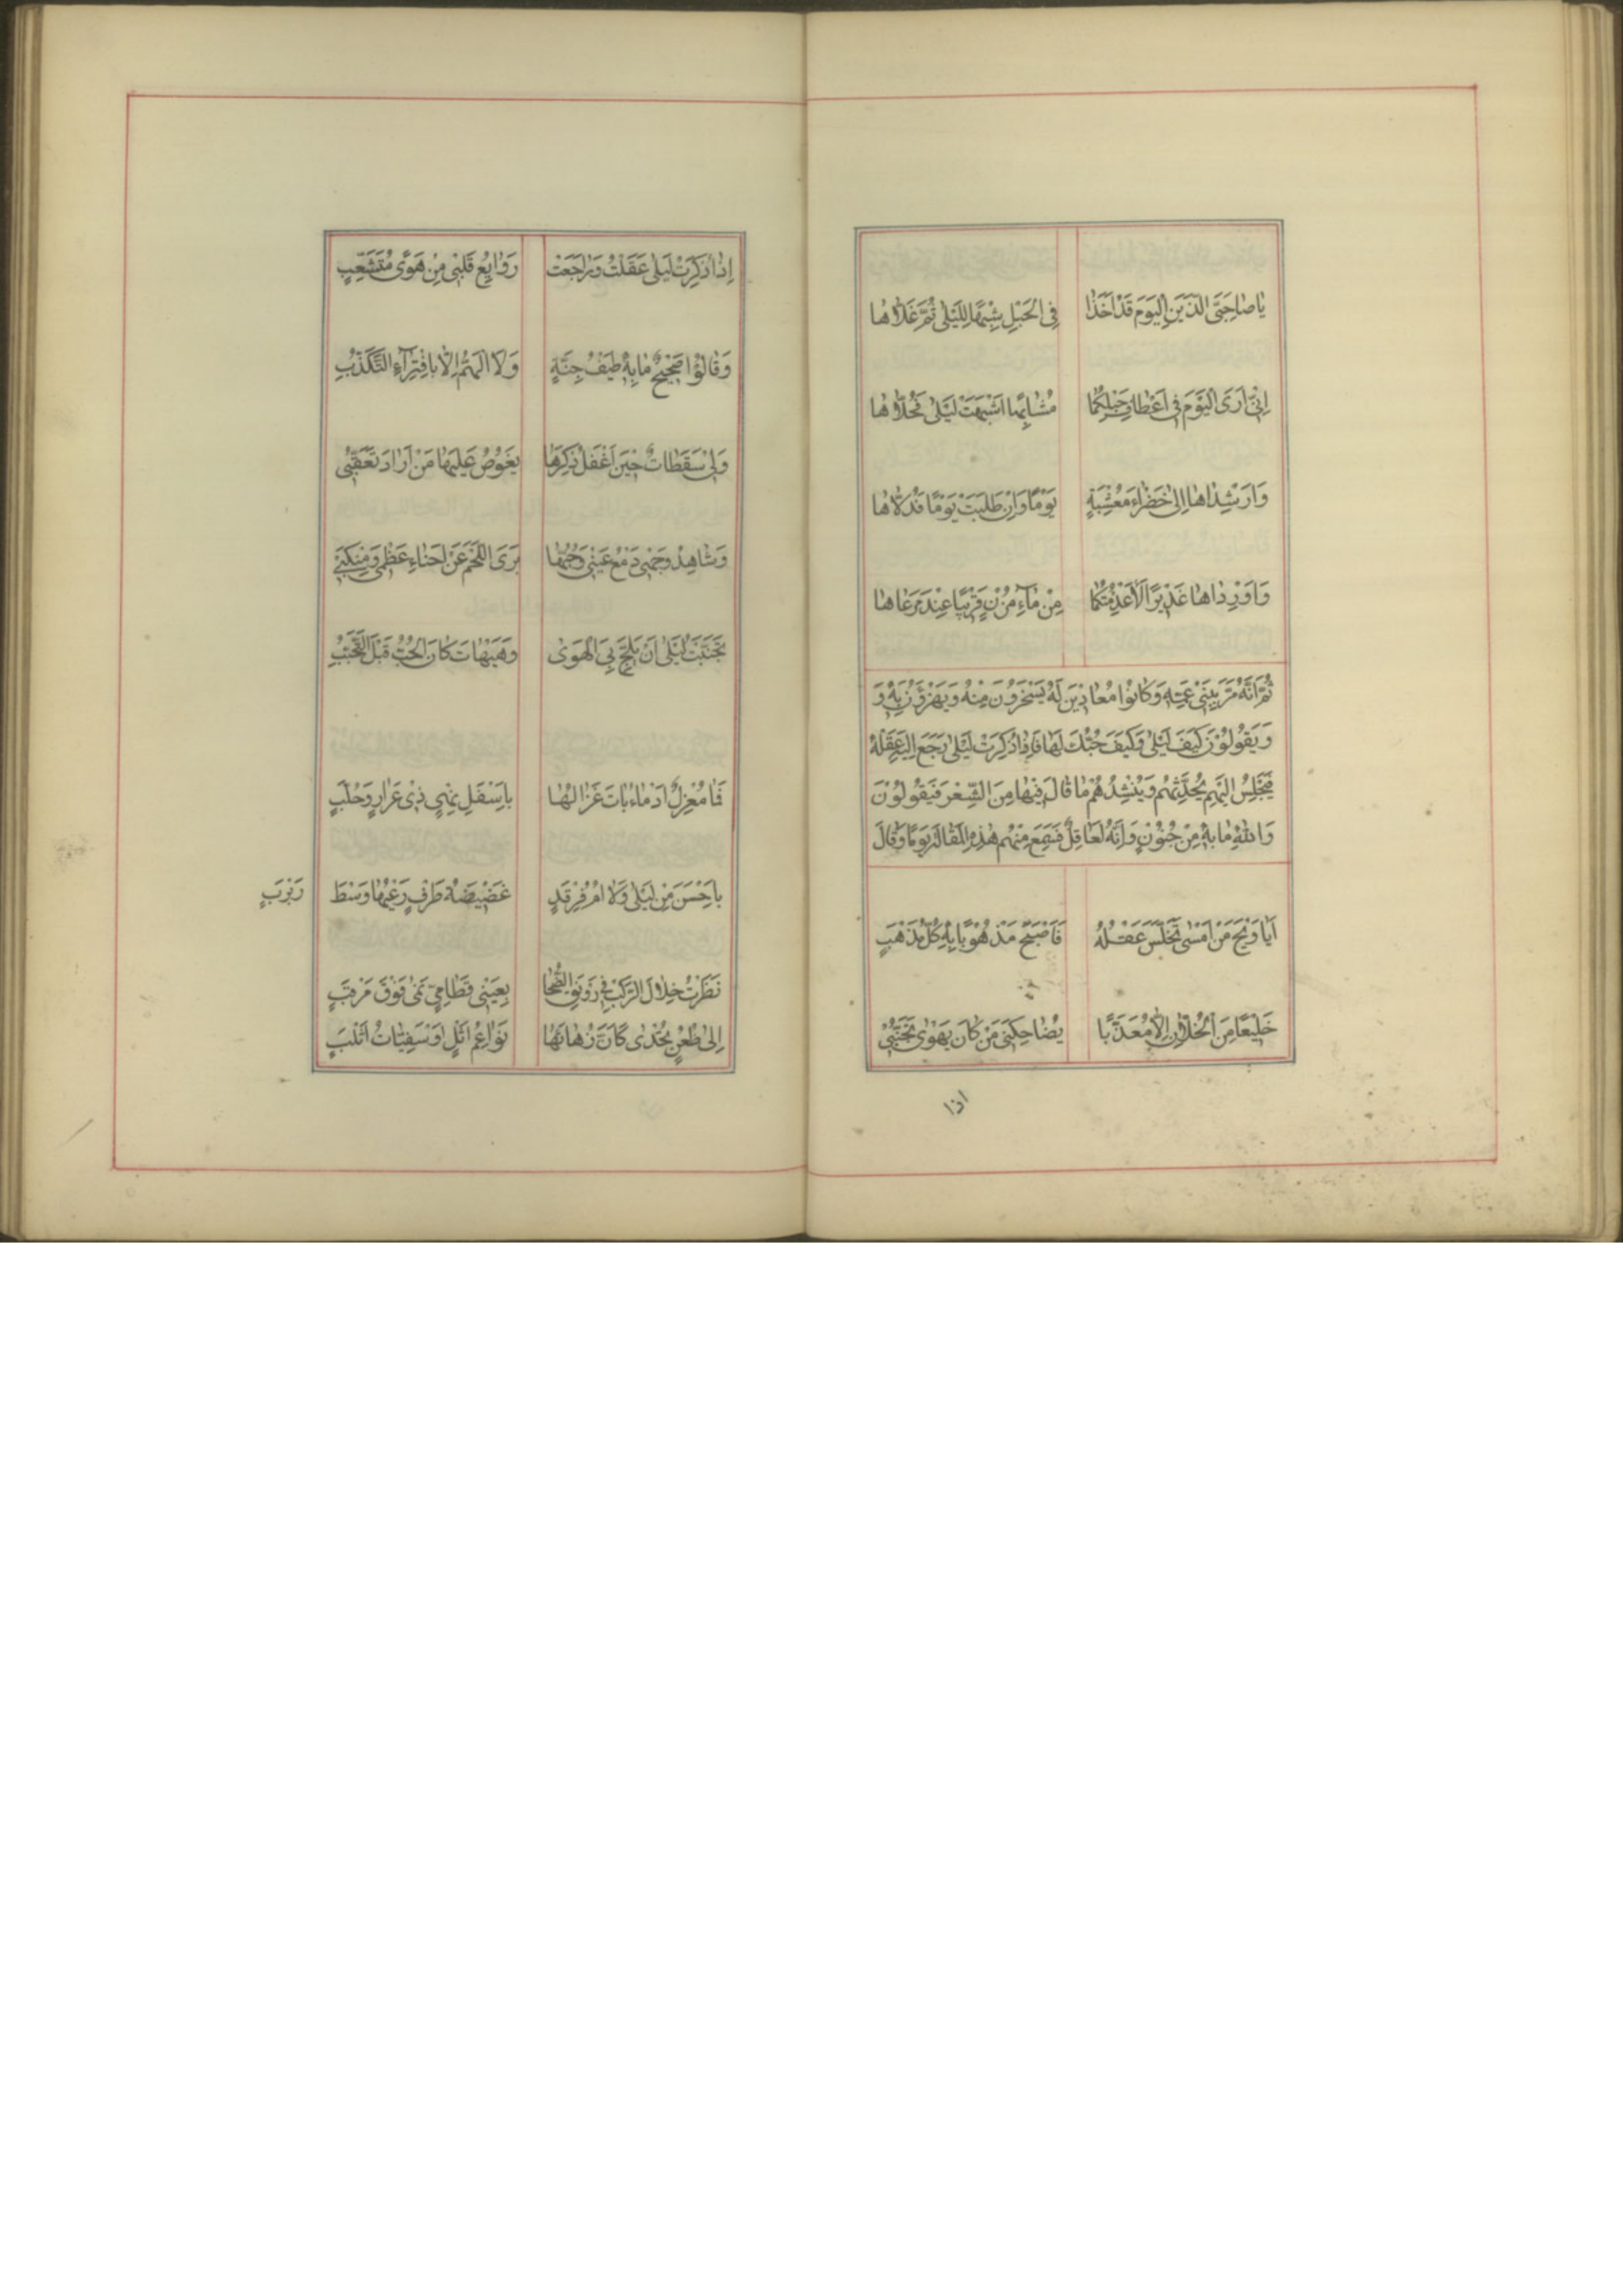 يٰا صٰاحِبَيَّ الَّذَيْنِ الْيَوَمَ قَدْ اَخَذٰا فِى الْحَبْلِ شِبْهًا لِلَيْلىٰ ثُمَّ غَلّاٰهٰا
اِنّىٖ اَرَى الْيَوَمَ فىٖ اَعْطافِ حَبْلِكُمٰا مُشٰابِهًا اَشْبَهَتْ لَيْلىٰ فَحُلّاٰهٰا
وَاَرْشِدٰاهٰا اِلىٰ خَضْرٰاءَ مُعْشِبَةٍ يَوْمًا وَاِنْ طَلَبَتْ يَوْمًا فَدُلّاٰهٰا
وَاَوْرِدٰاهٰا غَدٖيرًا لاٰعَدِمْتُكُمٰا مِنْ مٰآءِ مُزْنٍ قَرٖيبًا عِنْدَ مَرْعٰاهٰا
ثُمَّ اَنَّهُ مَرَّ بِبَنىٖ عَمِّهِ وَكٰانُوْا مُعٰادٖينَ لَهُ يَسْخَرُوْنَ مِنْهُ وَيَهْزَؤُنَ بِهٖ وَ
وَيَقُوْلُوْنَ كَيْفَ لَيْلىٰ وَكَيْفَ حُبُّكَ لَهٰا فَاِذٰا ذُكِرَتْ لَيْلىٰ رَجَعَ اِلَيْهِ عَقْلُهُ
فَيَجْلِسُ اِلَيْهِمْ يُحَدِّثُهُمْ وَيُنْشِدُهُمْ مٰا قٰالَ فٖيهٰا مِنَ الشِّعْرَ فَيَقُوْلُوْنَ
وَاللّٰهِ مٰا بِهٖ مِنْ جُنُوْنٍ وَاِنَّهُ لَعٰاقِلٌ فَسَمِعَ مِنْهُمْ هٰذِهِ الْمَقٰالَةَ يَوْمًا وَقٰالَ
اَيٰا وَيْحَ مَنْ اَمْسىٰ تَخَلَّسَ عَقْلُهُ فَاَصْبَحَ مَذْهُوْبًا بِهٖ كُلَّ مَذْهَبٍ
خَلٖيعًا مِنَ الْخُلّاٰنِ اِلاّٰ مُعَذَّبًا يُضٰاحِكُنىٖ مَنْ كٰانَ يَهْوىٰ تَجَنُّبىٖ
اذا
اِذٰا ذُكِرَتْ لَيْلىٰ عَقَلْتُ وَرٰاجَعَتْ رَوٰايِعُ قَلْبىٖ مِنْ هَوًى مُتَشَعِّبٍ
وَقٰالُوْا صَحٖيحٌ مٰا بِهٖ طَيْفُ جِنَّةٍ وَلاَ الْهَمُّ اِلاّٰ بِافْتِرٰآءِ التَّكَذُّبِ
وَلىٖ سَقَطٰاتٌ حٖينَ اَغْفَلُ ذِكْرَهٰا يَغُوْصُ عَلَيْهٰا مَنْ اَرٰادَ تَعَقُّبىٖ
وَشٰاهِدُ وَجْهىٖ دَمْعُ عَيْنىٖ وَحُبُّهٰا بَرَى اللَّحْمَ عَنْ اَحْنٰاءِ عَظْمىٖ وَمَنْكِبىٖ
تَجَنَّبْتُ لَيْلىٰ اَنْ يَلِجَّ بِىَ الْهَوىٰ وَهَيْهٰاتَ كٰانَ الْحُبُّ قَبْلَ التَّجَنُّبِ
فَمٰا مُغْزِلٌ اَدْمٰاءُ بٰاتَ غَزٰالُهٰا بِاَسْفَلِ نِهْيٍ ذىٖ عَرٰارٍ وَحُلَّبٍ
بِاَحْسَنَ مِنْ لَيْلىٰ وَلاٰ اُمُّ فَرْقَدٍ غَضٖيضَةُ طَرْفٍ رَعْيُهٰا وَسْطَ رَبْرَبٍ
نَظَرْتُ خِلاٰلَ الرَّكْبِ فىٖ رَوْنَقِ الضُّحٰا بِعَيْنىٖ قَطٰامِيٍّ نَمٰى فَوْقَ مَرْقَبٍ
اِلىٰ ظُعُنٍ تُحْدٰى كَاَنَّ زُهٰائَهٰا نَوٰاعِمُ اَثْلٍ اَوْ سَفِيّٰاتُ اَثْلَبٍ